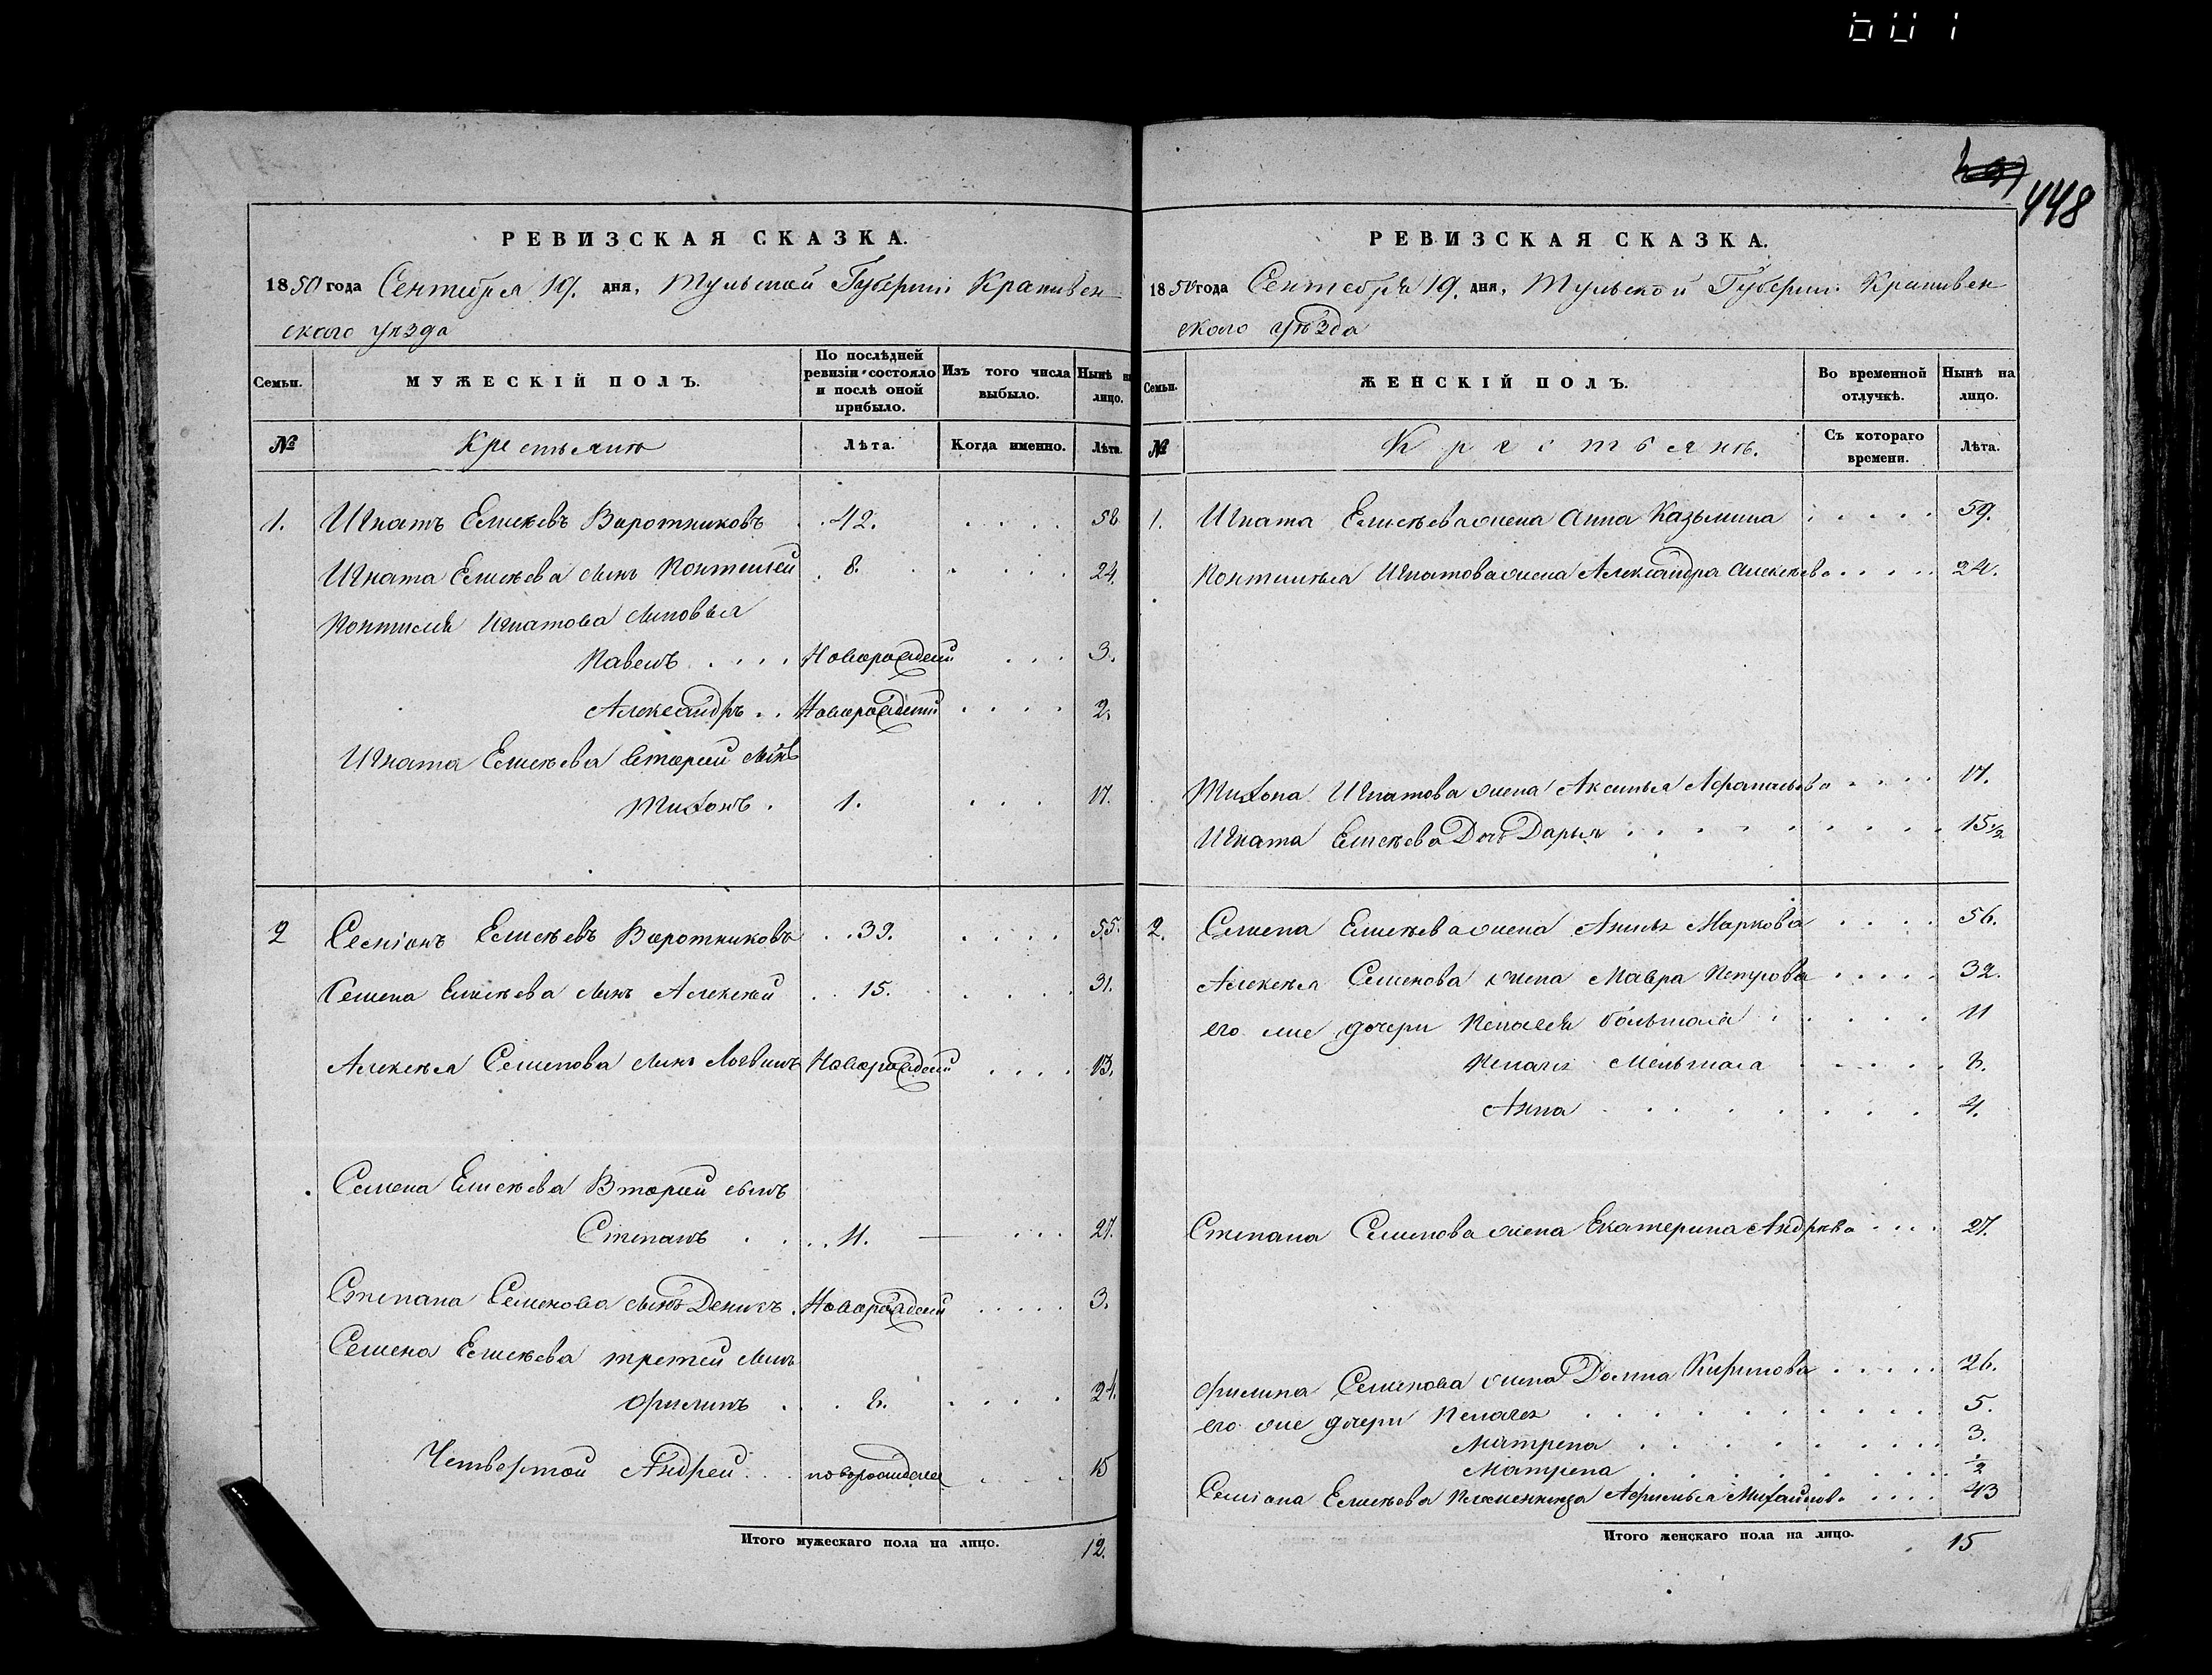 448
РЕВИЗСКАЯ СКАЗКА.
1850 года Сентебря 19. дня, Тульской Губернии Крапивен
ского уѣзда
Семьи.
МУЖЕСКІЙ ПОЛЪ.
По послѣдней ревизіи состояло и послѣ оной прибыло.
Изъ того числа выбыло.
Нынѣ на лицо.
№
Крестьянъ
Лѣта.
Когда именно.
Лѣта.
1. Игнатъ Елисѣевъ Воротниковъ . . 42. . . . . 58
Игната Елисѣева сынъ Поктисей . 8. . . . . 24.
Игнатова сыновья
Павелъ . . . . Новорожденій . . . 3.
Александръ . . Новорожденій . . . . 2.
Игната Елисѣева вторый сынъ
Тихонъ . 1. . . . 17.
2 Семіонъ Елисѣевъ Воротниковъ . . 39. . . . . 55.
Семена Елисѣева сынъ Алексѣй . . 15. . . . . 31.
Алексѣя Семенова сынъ Логвинъ Новорожденій . . . . 13.
Семена Елисѣева Вторый сынъ
Степанъ . . . . 11. — . . . 27.
Степана Семенова сынъ Денисъ . Новорожденій . . . . . 3.
Семена Елисѣева третей сынъ
Филипъ . . . 8. . . . . 24.
Четвертой Андрей . . . новорожденей . . . 15
Итого мужескаго пола на лицо. 12.
РЕВИЗСКАЯ СКАЗКА.
1850 года Сентебря 19. дня, Тульской Губернии Крапивен
ского уѣзда
Семьи.
ЖЕНСКІЙ ПОЛЪ.
Во временной отлучкѣ.
Нынѣ на лицо.
№
Крестьянъ.
Съ котораго времени.
Лѣта.
1. Игната Елисѣева жена Анна Казьмина . . . . . 59.
Игнатова жена Александра Алексѣева . . . . 24.
Тихона Игнатова жена Аксинья Афанасьева . . . . 17.
Игната Елисѣева Дочь Дарья . . . . . . . . 15½
2. Семена Елисѣева жена Маркова . . . . 56.
Алексѣя Семенова жена Мавра Петрова . . . . . 32.
его же дочери Пелагея большая . . . . . 11
Пелагея Меньшая . . . . . 8.
Анна . . . . . . . . 4.
Степана Семенова жена Екатерина Андрѣева . . . . 27.
Филипа Семенова жена Домна Кирилова . . . . . 26.
его же дочери Пелагея . . . . . . . . . 5.
Матрена . . . . . . . . 3.
Матрена . . . . . . . . ½
Семіона Елисѣева Племенница Афимья Михайлова . . . . 43
Итого женскаго пола на лицо. 15